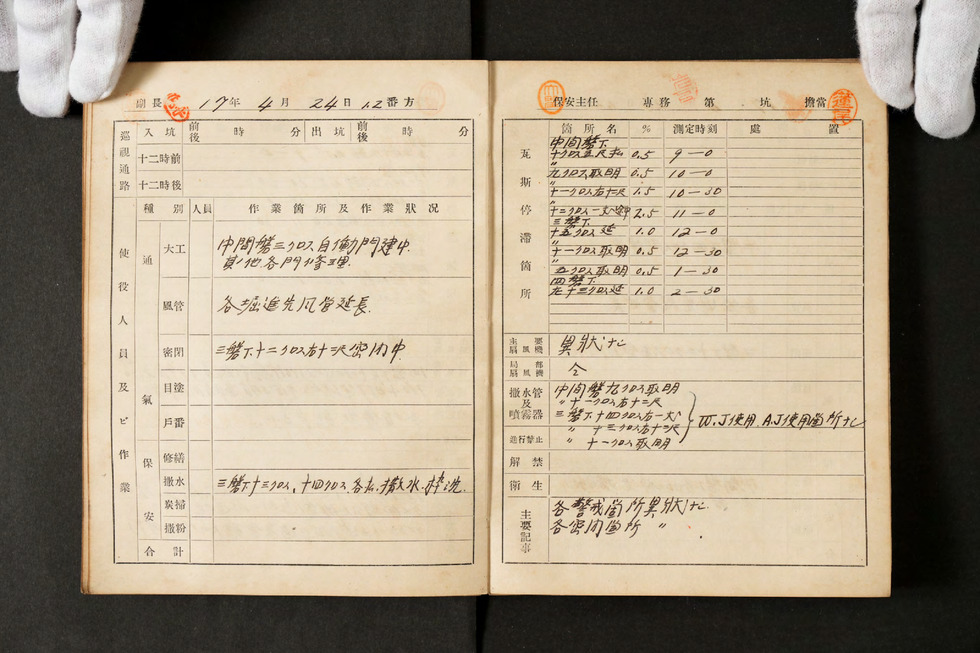 副長 17年 4月 24日 1.2番方
巡視通路 入坑 前後 時 分 出坑 前後 時 分
十二時前
十二時後
使役人員及ビ作業
種別 人員 作業箇所及作業狀況
通氣
大工 中間磐三クロス自働門建中.
其ノ他各門修理.
風管 各堀進先風管延長.
密閉 三磐下十二クロス右十二尺密閉中
目塗
戶番
保安
修繕
撒水 三磐下十三クロス、十四クロス、各払、撒水、枠洗.
炭掃
撒粉
合計
保安主任 專務 第 坑 擔當
瓦斯停滯箇所
箇所名 % 測定時刻 處置
中間磐下
十クロス 0.5 9-0
〃
九クロス取明 0.5 10-0
〃
十一クロス右十二尺 1.5 10-30
〃
十二クロス一丈 2.5 11-0
三磐下
十五クロス延 1.0 12-0
〃
十一クロス取明 0.5 12-30
〃
五クロス取明 0.5 1-30
四磐下
九十三クロス延 1.0 2-30
主要扇風機 異狀ナシ
局部扇風機 仝
撒水管及噴霧器
中間磐九クロス取明
〃 十一クロス右十二尺
三磐下十四クロス右一丈
〃 十三クロス右十二尺
〃 十一クロス取明
W.J使用、A.J使用箇所ナシ
進行禁止
解禁
衞生
主要記事
各警戒箇所異狀ナシ.
各密閉箇所 〃 .